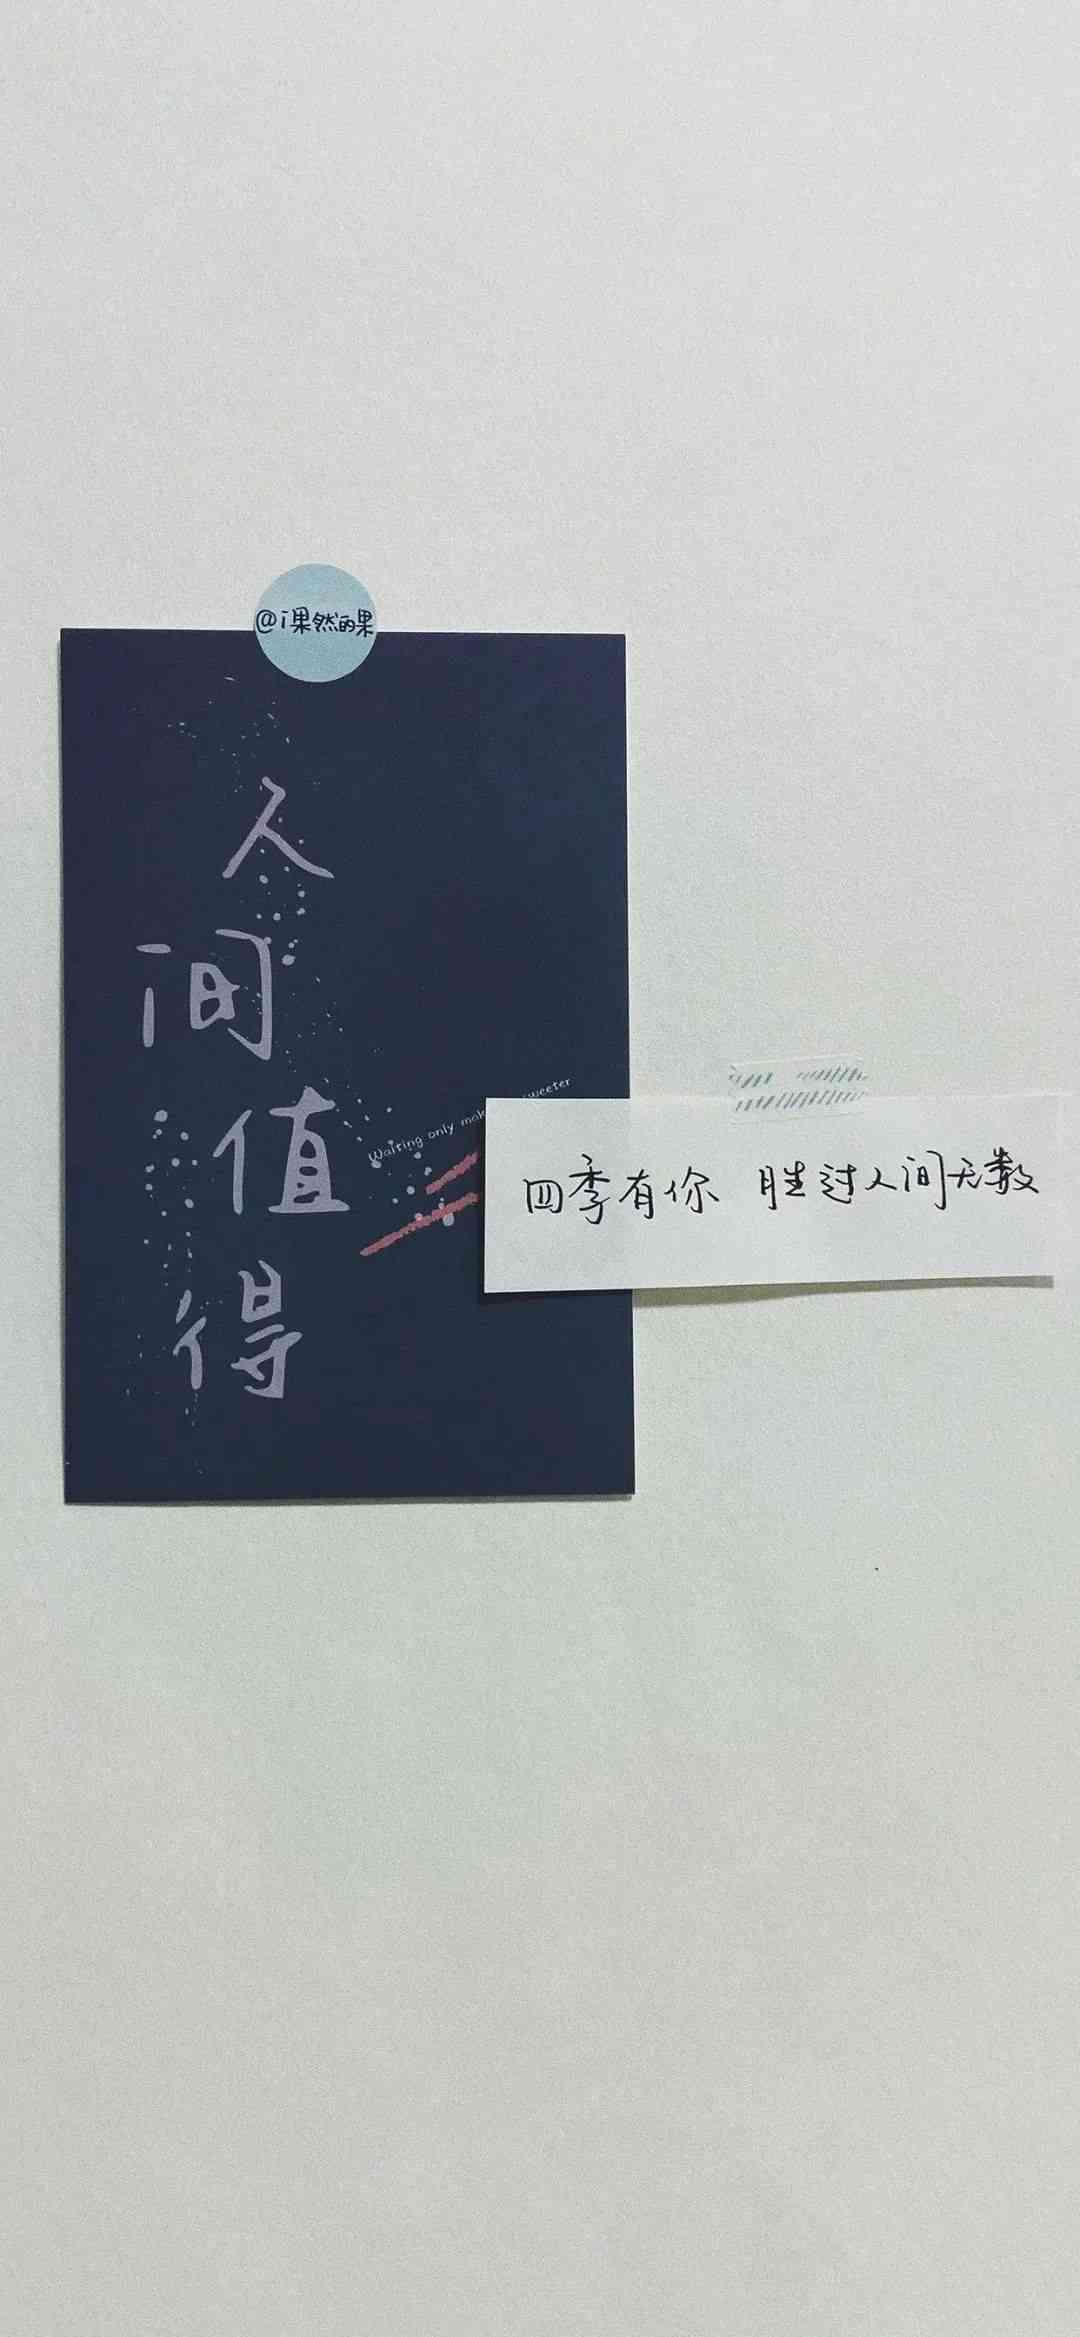 @i果然的果
人
间
值
得
Waiting only
sweeter
四季有你 胜过人间无数